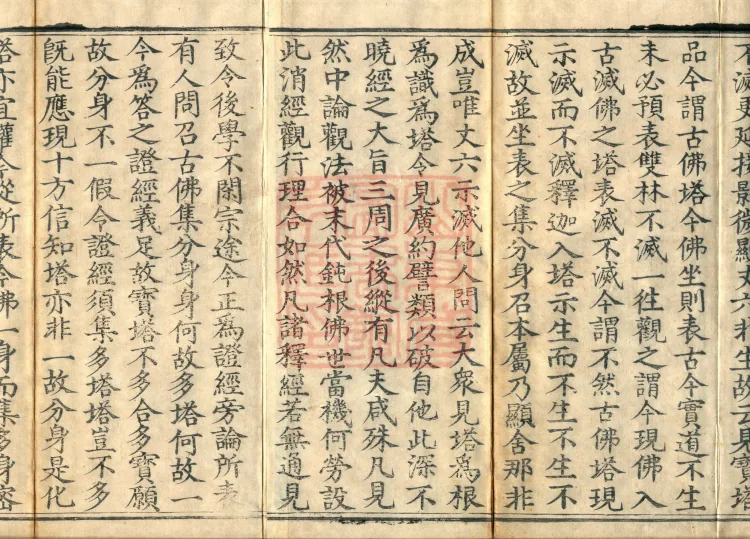 不滅更延接影復顯丈六非生故云見寶塔
品今謂古佛塔今佛坐則表古今實道不生
未必預表雙林不滅一往觀之謂今現佛入
古滅佛之塔表滅不滅今謂不然古佛塔現
示滅而不滅釋迦入塔示生而不生不生不
滅故並坐表之集分身召本屬乃顯舍那非
成豈唯丈六示滅他人問云大衆見塔爲根
爲識爲塔今見廣約譬類以破自他此深不
曉經之大旨三周之後縱有凡夫咸殊凡見
然中論觀法被末代鈍根佛世當機何勞設
此消經觀行理合如然凡諸釋經若無通見
致令後學不閑宗途今正爲證經旁論所表
有人問召古佛集分身身何故多塔何故一
今爲答之證經義足故寶塔不多合多寶願
故分身不一假令證經須集多塔塔豈不多
旣能應現十方信知塔亦非一故分身是化
塔亦宜權今從所表今佛一身而集多身密